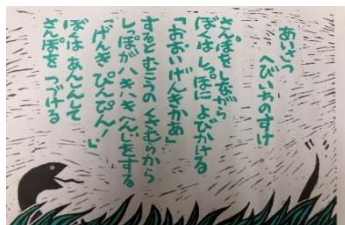 あいさつ
へびいちのすけ
さんぽを しながら
ぼくは しっぽに よびかける
「おおい げんきかあ」
すると むこうの くさむらから
しっぽが ハキハキ へんじをする
「げんき ぴんぴん!」
ぼくは あんしんして
さんぽを つづける